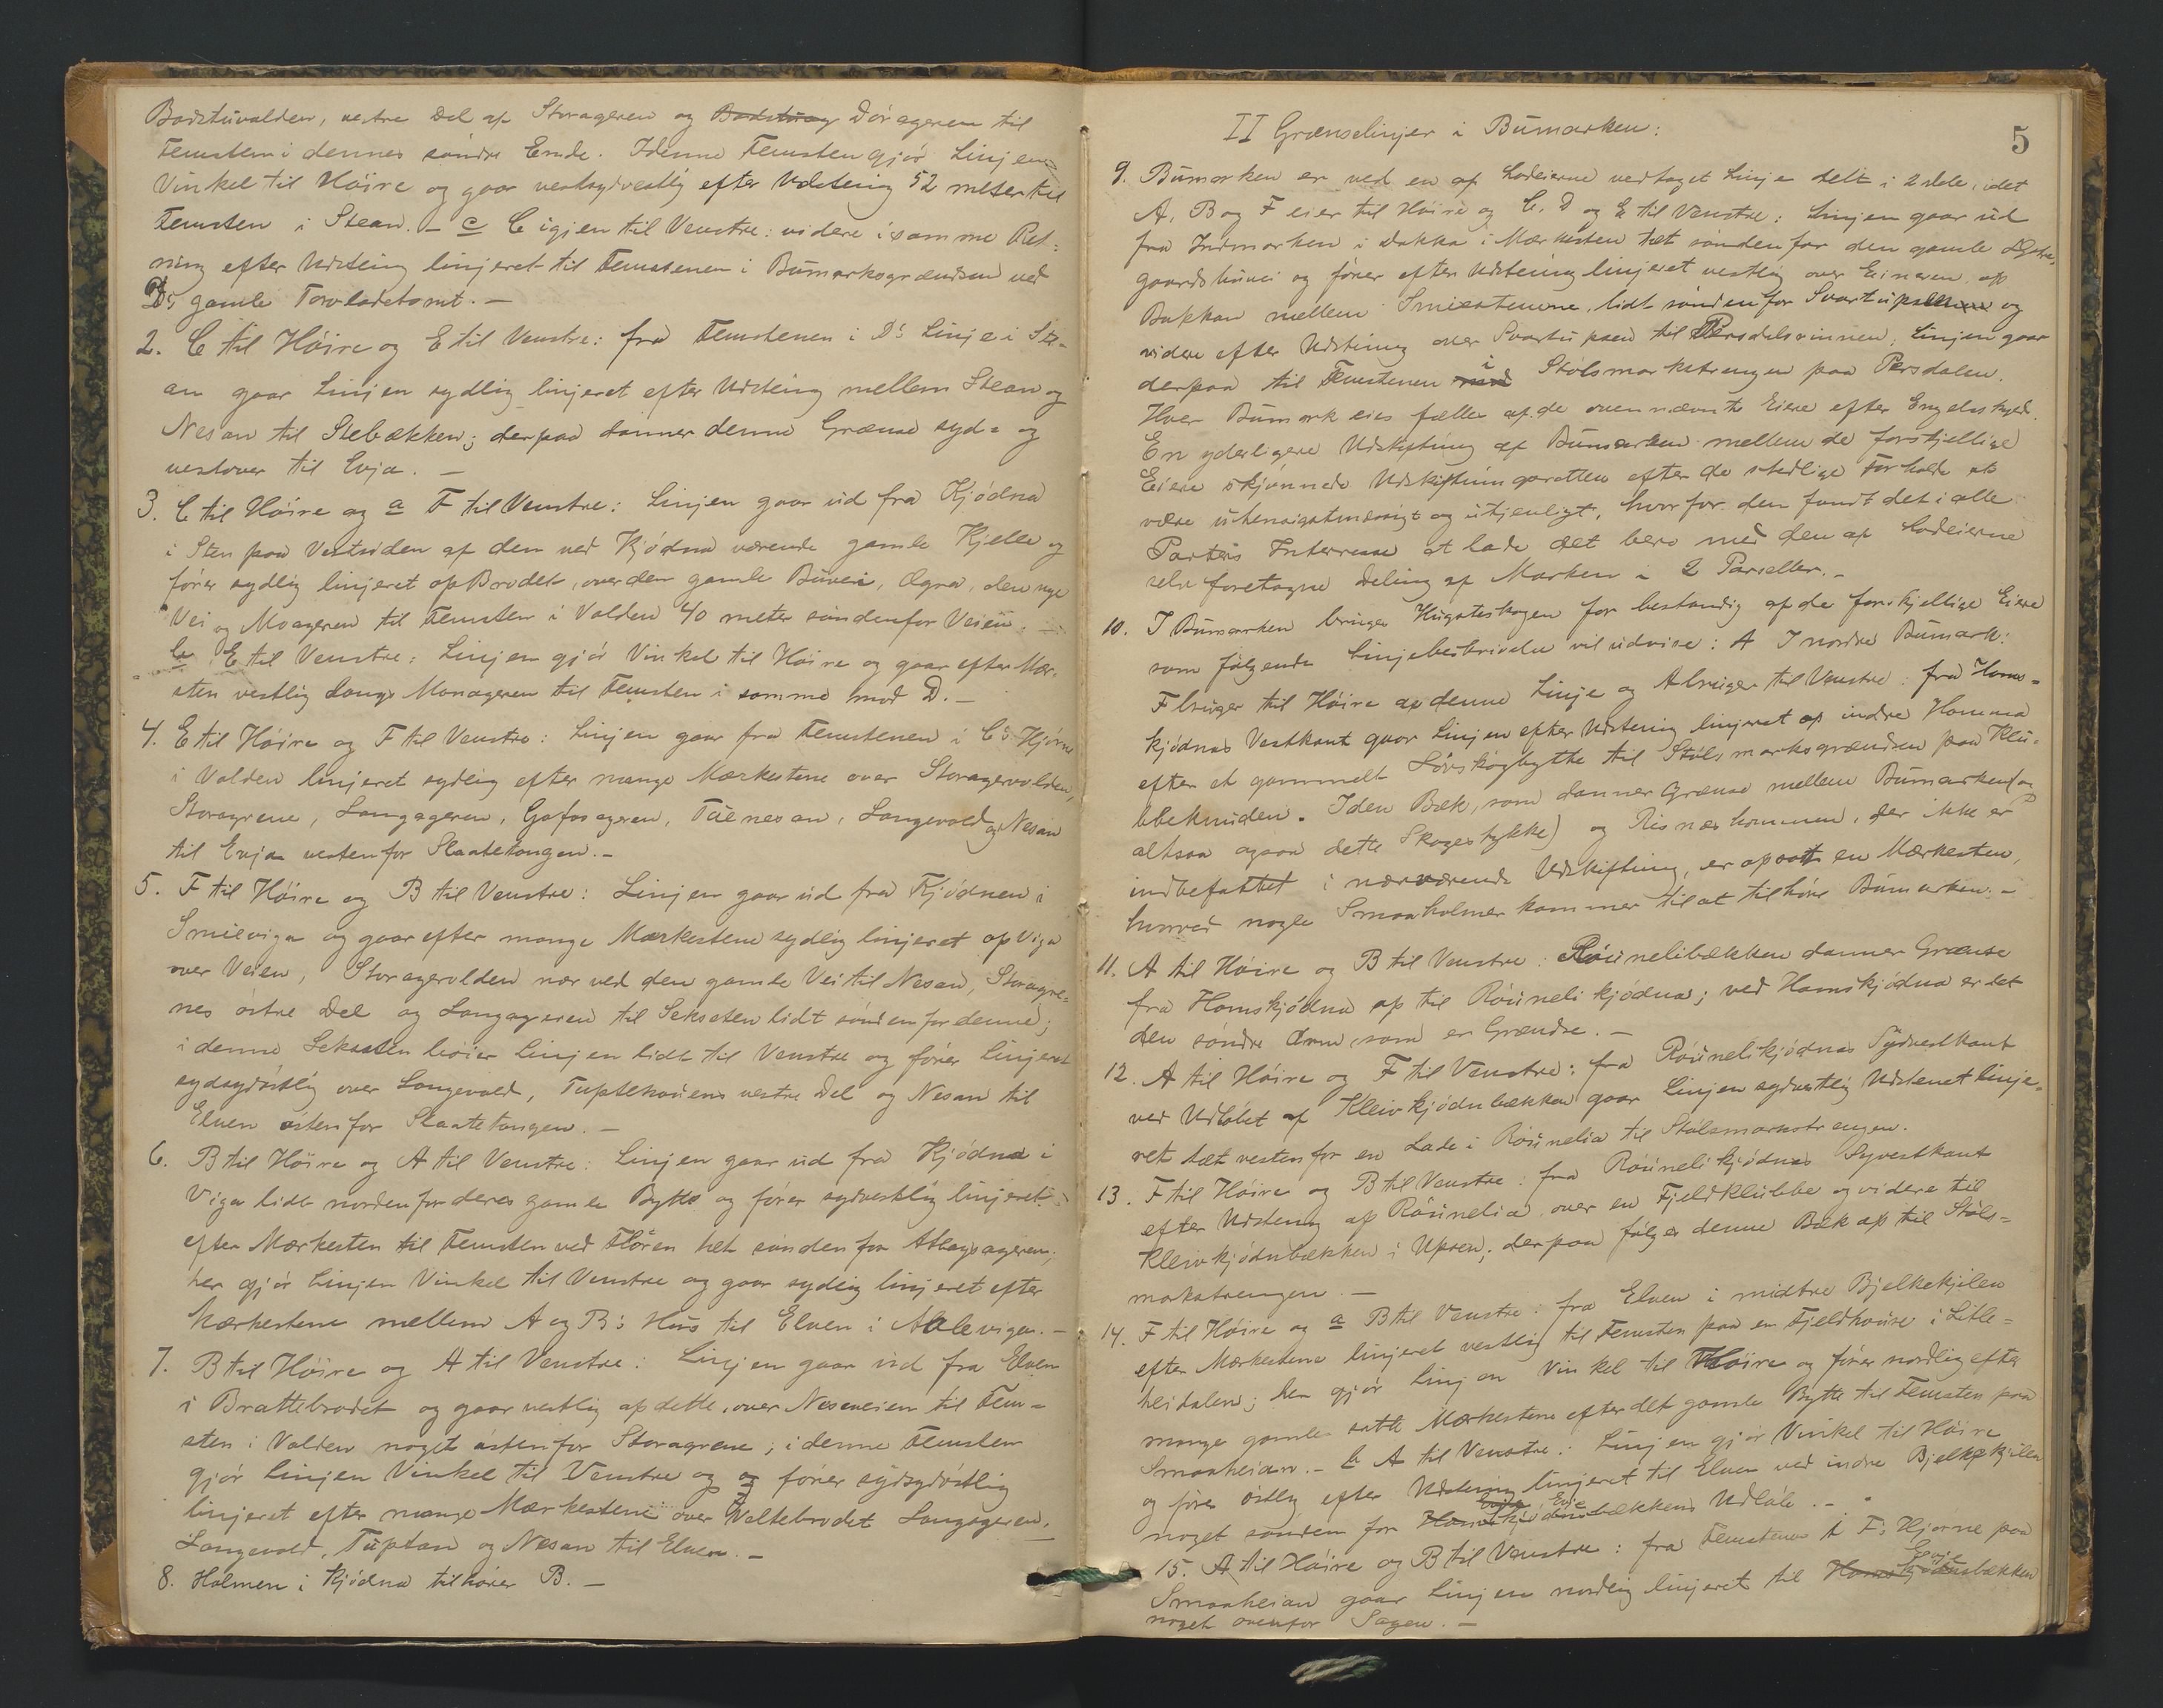 Badstuvolden, vestre Del af Storageren og Badstuag Dörageren til
Femsten i dennes söndre Ende. I denne Femsten gjör Linjen
Vinkel til Höire og gaar vestsydvestlig efter Udstening 52 meter til
Femsten i Stean. - c C igjen til Venstre: videre i samme Ret-
ning efter Udstening linjeret til Femstenen i Bumarksgrændsen ved
D's gamle Torvladetomt. -
2. C til Höire og E til Venstre: fra Femstenen i D's Linje i Ste-
an gaar Linjen sydlig linjeret efter Udstening mellem Stean og
Nesan til Stebækken; derpaa danner denne Grænse syd- og
vestover til Evja. -
3. C til Höire og a F til Venstre: Linjen gaar ud fra Kjödna
i Sten paa Vestsiden af den ved Kjödna værende gamle Kjelle og
förer sydlig linjeret op Brodet, over den gamle Buvei, Øgra, den nye
Vei og Moageren til Femsten i Volden 40 meter söndenfor Veien. -
b E til Venstre: Linjen gjör Vinkel til Höire og gaar efter Mær-
sten vestlig langs Monageren til Femsten i samme mod D. -
4. E til Höire og F til Venstre: Linjen gaar fra Femstenen i C's Hjörne
i Volden linjeret sydlig efter mange Mærkestene over Storagervolden,
Storagrene, Langageren, Gofosageren, Tuenesan, Langevold og Nesan
til Evja vestenfor Slaatetangen. -
5. F til Höire og B til Venstre: Linjen gaar ud fra Kjödnen i
Smieviga og gaar efter mange Mærkestene sydlig linjeret op Viga
over Veien, Storagervolden nær ved den gamle Vei til Nesan, Storagre-
nes östre Del og Langageren til Seksten lidt söndenfor denne;
i denne Seksten böier Linjen lidt til Venstre og förer linjeret
sydsydöstlig over Langevold, Tuptehouens vestre Del og Nesan til
Elven östenfor Slaatetangen. -
6. B til Höire og A til Venstre: Linjen gaar ud fra Kjödna i
Viga lidt nordenfor deres gamle Bytte og förer sydvestlig linjeret
efter Mærkesten til Femsten ved Flören tet söndenfor Atlagsageren;
her gjör Linjen Vinkel til Venstre og gaar sydlig linjeret efter
Mærkestene mellem A og B's Hus til Elven i Aalevigen. -
7. B til Höire og A til Venstre: Linjen gaar ud fra Elven
i Brattebrodet og gaar vestlig op dette, over Neseveien til Fem-
sten i Volden noget östenfor Storagrene; i denne Femsten
gjör Linjen Vinkel til Venstre og og förer sydsydöstlig
linjeret efter mange Mærkestene over Voltebrodet Langageren,
Langevold, Tuptan og Nesan til Elven. -
8. Holmen i Kjödna tilhörer B. -
5
II Grænselinjer i Bumarken:
9. Bumarken er ved en af Lodeierne vedtaget Linje delt i 2 Dele, idet
A, B og F eier til Höire og C, D og E til Venstre: Linjen gaar ud
fra Indmarken i Dokka i Mærkesten tæt söndenfor den gamle Øgre-
gaardshuvei og förer efter Udstening linjeret vestlig over Eineren op
Bakkan mellem Smiestenene, lidt söndenfor Svartupsenen og
videre efter Udstening over Svartupsen til Persdalsrinnen; Linjen gaar
derpaa til Femstenen ved i Stölsmarkstrengen paa Persdalen.
Hver Bumark eies fælles af de ovennævnte Eiere efter Engelsskyld.
En yderligere Udskiftning af Bumarken mellem de forskjellige
Eiere skjönnede Udskiftningsretten efter de stedlige Forholde at
være uhensigtsmæssigt og utjenligt, hvorfor den fandt det i alle
Parters Interesse at lade det bero med den af Lodeierne
selv foretagne Deling af Marken i 2 Parseller. -
10. I Bumarken bruges Hugsteskogen for bestandig af de forskjellige Eiere
som fölgende Linjebeskrivelse vil udvise: A I nordre Bumark:
F bruger til Höire af denne Linje og A bruger til Venstre: fra Homs-
kjödnas Vestkant gaar Linjen efter Udstening linjeret op indre Homma
efter et gammelt Lövskogbytte til Stölsmarksgrændsen paa Klu-
bbeknuden. I den Bæk, som danner Grænse mellem Bumarken (og
altsaa ogsaa dette Skogestykke) og Risneshommen, der ikke er
indbefattet i nærværende Udskiftning, er opsatt en Mærkesten,
hvorved nogle Smaaholmer kommer til at tilhöre Bumarken. -
11. A til Höire og B til Venstre: Röunelibækken danner Grænse
fra Homskjödna op til Röunelikjödna; ved Homskjödna er det
den söndre Arm, som er Grændse. -
12. A til Höire og F til Venstre: fra Röunelikjödnas Sydvestkant
ved Udlöbet af Kleivkjödnbækken gaar Linjen sydvestlig Udstenet linje-
ret tæt vestenfor en Lade i Röunelia til Stölsmarkstrengen.
13. F til Höire og B til Venstre: fra Röunelikjödnas Syvestkant
efter Udstening op Röunelia over en Fjeldklubbe og videre til
Kleivkjödnbækken i Upsen; derpaa fölges denne Bæk op til Stöls-
markstrengen. -
14. F til Höire og a B til Venstre: fra Elven i midtre Bjelkekjilen
efter Mærkestene linjeret vestlig til Femsten paa en Fjeldhouse i Litle-
heidalen; her gjör Linjen Vinkel til Höire og förer nordlig efter
mange gamle satte Mærkestene efter det gamle Bytte til Femsten paa
Smaaheian. - b A til Venstre: Linjen gjör Vinkel til Höire
og förer östlig efter Udstening linjeret til Elven ved indre Bjelkekjilen
noget sönden for Homskjödnsbækkens Evje Udlöb. -
15. A til Höire og B til Venstre: fra Femstenen i F's Hjørne paa
Smaaheian gaar Linjen nordlig linjeret til Homskjödnsbækken Evje
noget ovenfor Sagen. -